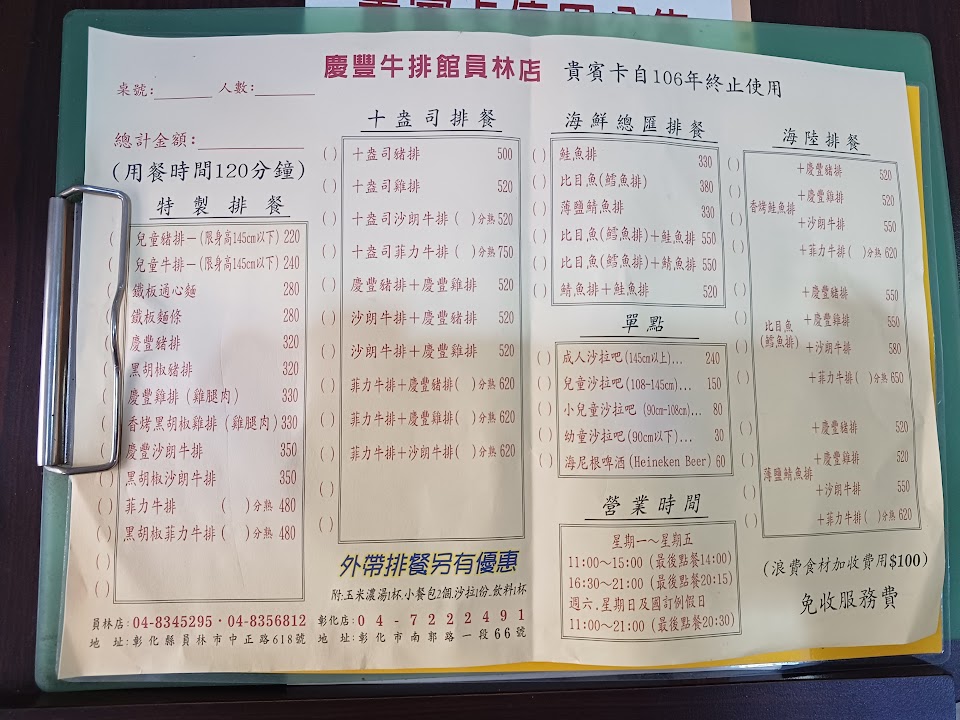 慶豐牛排館員林店
貴賓卡自106年終止使用
桌號:
人數:
總計金額:
(用餐時間120分鐘)
特製排餐
( ) 兒童豬排—(限身高145cm以下) 220
( ) 兒童牛排—(限身高145cm以下) 240
( ) 鐵板通心麵 280
( ) 鐵板麵條 280
( ) 慶豐豬排 320
( ) 黑胡椒豬排 320
( ) 慶豐雞排 (雞腿肉) 330
( ) 香烤黑胡椒雞排 (雞腿肉) 330
( ) 慶豐沙朗牛排 350
( ) 黑胡椒沙朗牛排 350
( ) 菲力牛排 ( )分熟 480
( ) 黑胡椒菲力牛排 ( )分熟 480
( )
( )
十盎司排餐
( ) 十盎司豬排 500
( ) 十盎司雞排 520
( ) 十盎司沙朗牛排 ( )分熟 520
( ) 十盎司菲力牛排 ( )分熟 750
( ) 慶豐豬排+慶豐雞排 520
( ) 沙朗牛排+慶豐豬排 520
( ) 沙朗牛排+慶豐雞排 520
( ) 菲力牛排+慶豐豬排( )分熟 620
( ) 菲力牛排+慶豐雞排( )分熟 620
( ) 菲力牛排+沙朗牛排( )分熟 620
( )
( )
外帶排餐另有優惠
附:玉米濃湯1杯.小餐包2個.沙拉1份.飲料1杯
海鮮總匯排餐
( ) 鮭魚排 330
( ) 比目魚(鱈魚排) 380
( ) 薄鹽鯖魚排 330
( ) 比目魚(鱈魚排)+鮭魚排 550
( ) 比目魚(鱈魚排)+鯖魚排 550
( ) 鯖魚排+鮭魚排 520
單點
( ) 成人沙拉吧(145cm以上)... 240
( ) 兒童沙拉吧(108-145cm)... 150
( ) 小兒童沙拉吧 (90cm-108cm)... 80
( ) 幼童沙拉吧(90cm以下)... 30
( ) 海尼根啤酒(Heineken Beer) 60
營業時間
星期一~星期五
11:00~15:00 (最後點餐14:00)
16:30~21:00 (最後點餐20:15)
週六.星期日及國訂例假日
11:00~21:00 (最後點餐20:30)
海陸排餐
香烤鮭魚排
( ) +慶豐豬排 520
( ) +慶豐雞排 520
( ) +沙朗牛排 550
( ) +菲力牛排 ( )分熟 620
比目魚
(鱈魚排)
( ) +慶豐豬排 550
( ) +慶豐雞排 550
( ) +沙朗牛排 580
( ) +菲力牛排( )分熟 650
薄鹽鯖魚排
( ) +慶豐豬排 520
( ) +慶豐雞排 520
( ) +沙朗牛排 550
( ) +菲力牛排( )分熟 620
(浪費食材加收費用$100)
免收服務費
員林店:04-8345295·04-8356812 彰化店:04-7222491
地 址:彰化縣員林市中正路618號 地 址:彰化市南郭路一段66號